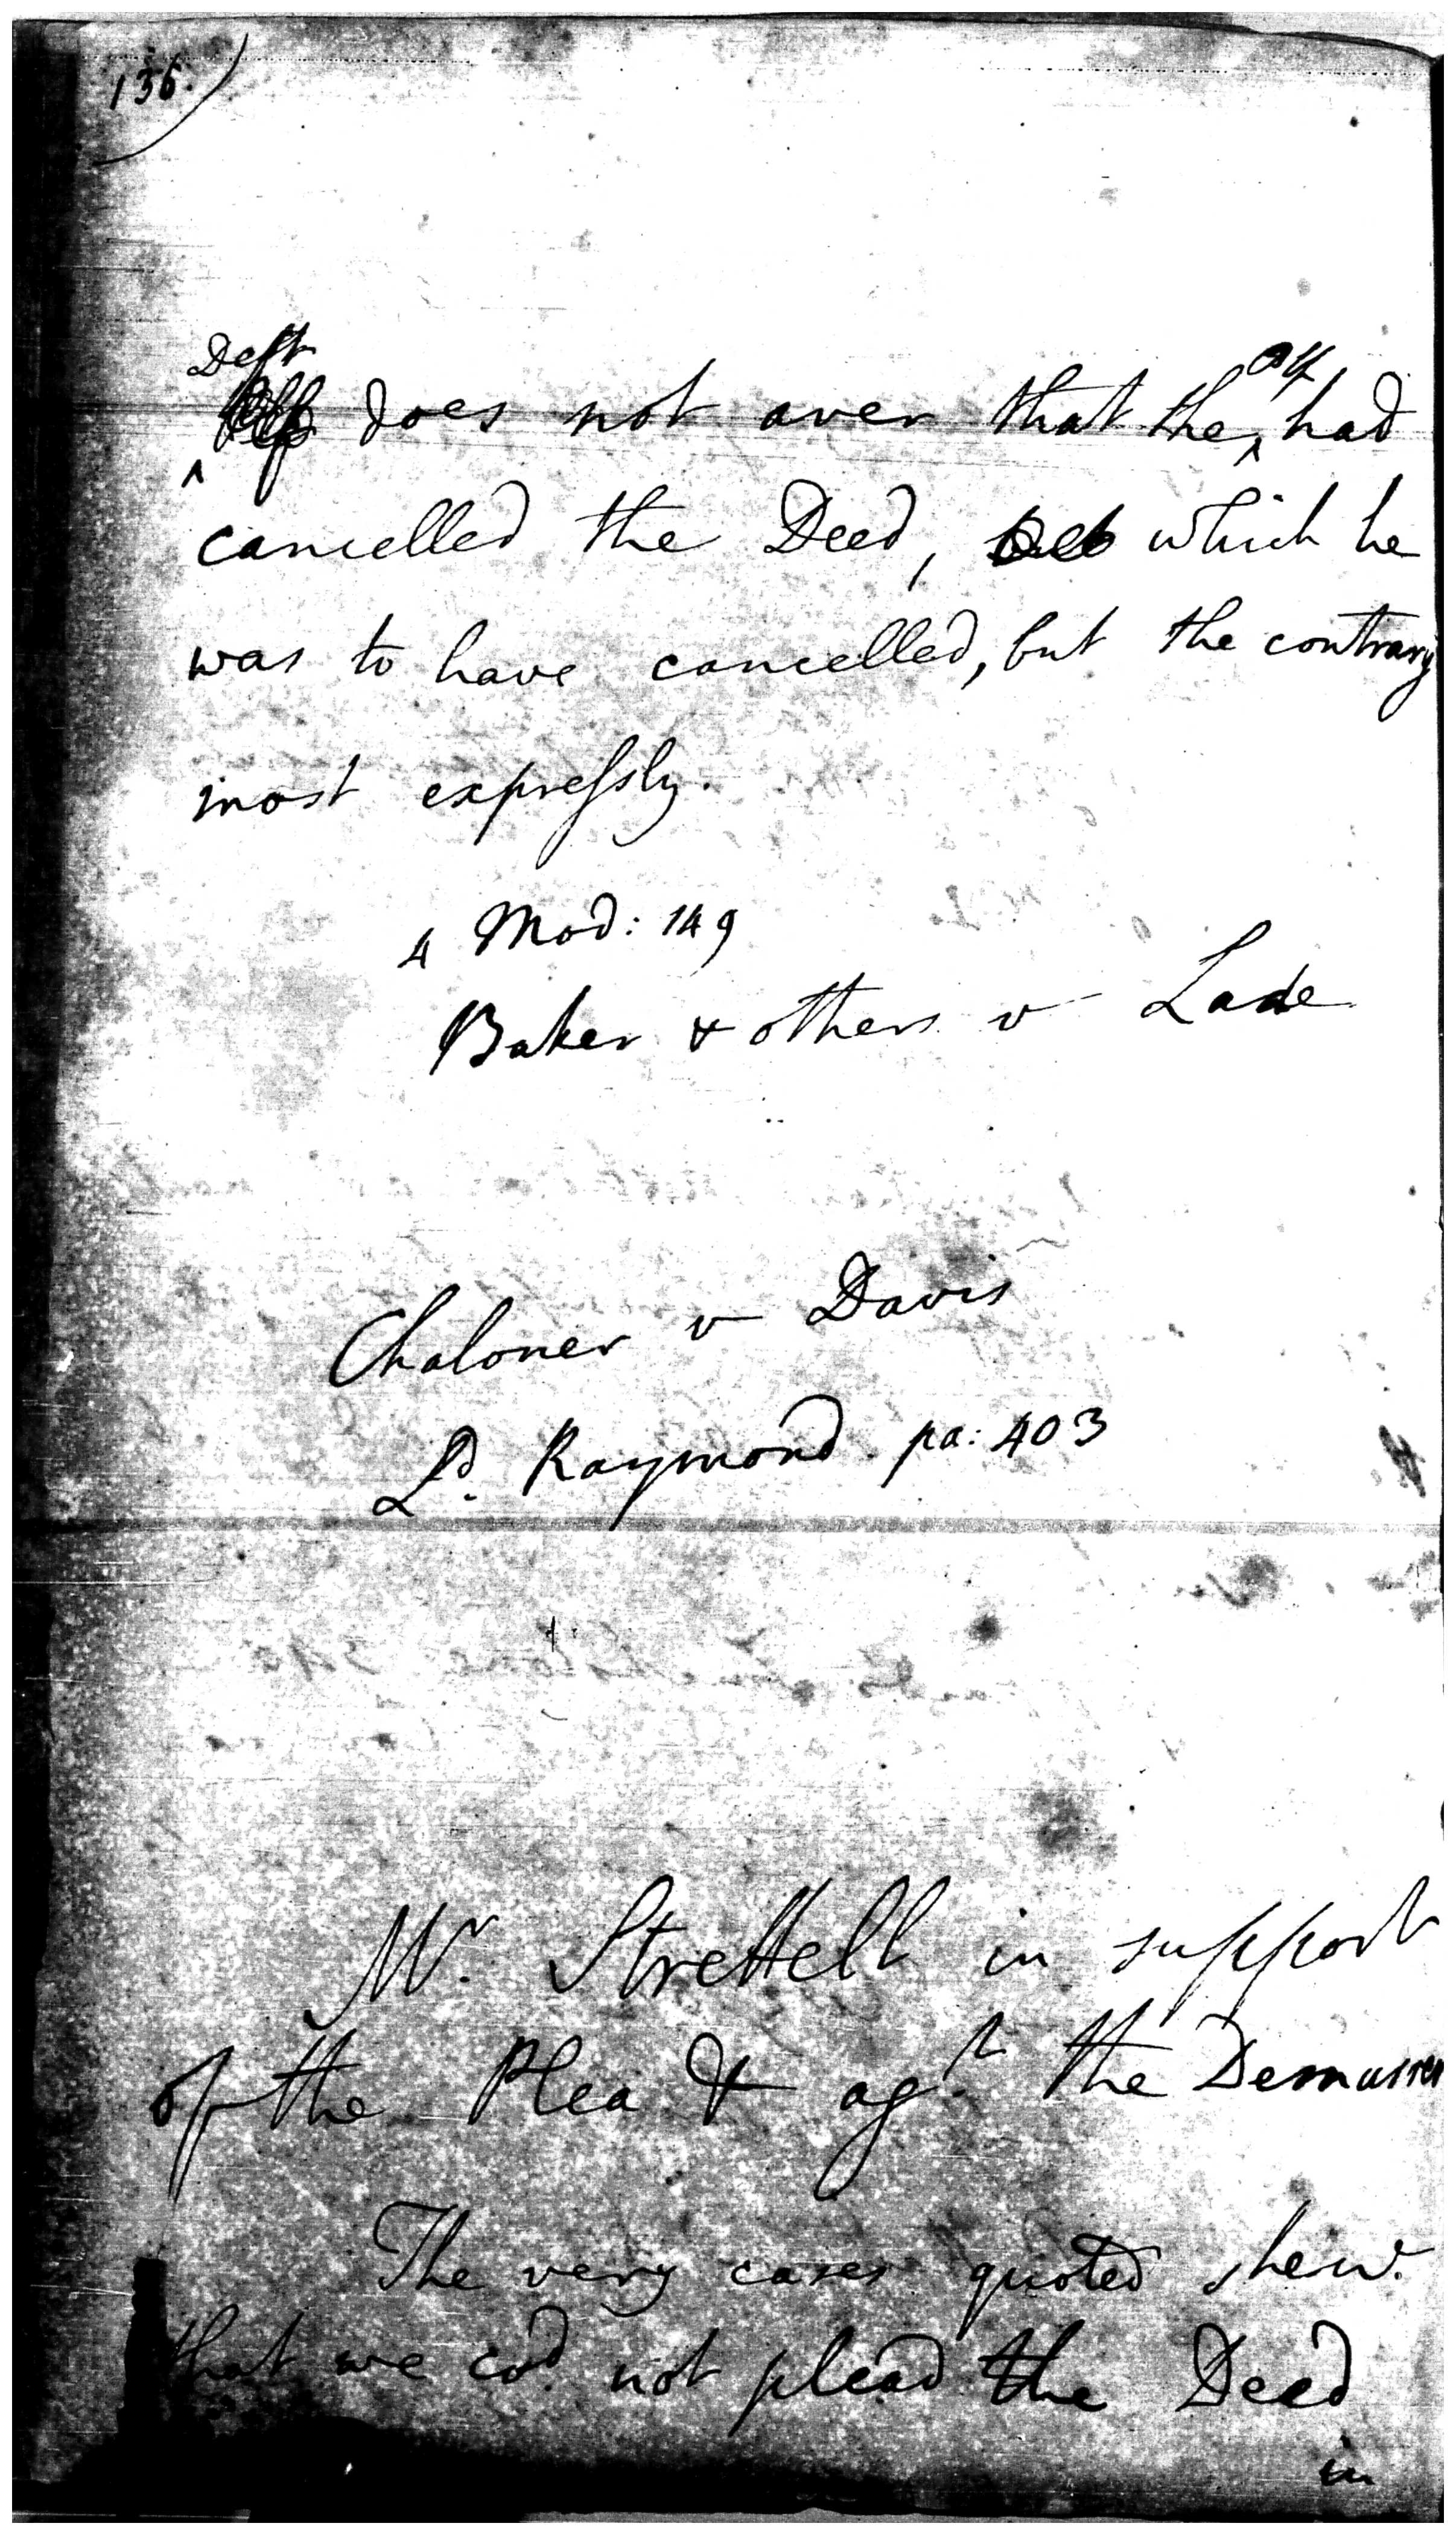 136.
Deft
does not aver that the plf had
cancelled the Deed, which he
was to have cancelled, but the contrary
most expressly.
4 Mod: 149
Baker & others v Lade
Chaloner v Davis
Ld. Raymond. pa: 403
Mr. Strettell in support
of the Plea & agt. the Demurrer
The very cases quoted shew.
that we cod. not plead the Deed
in